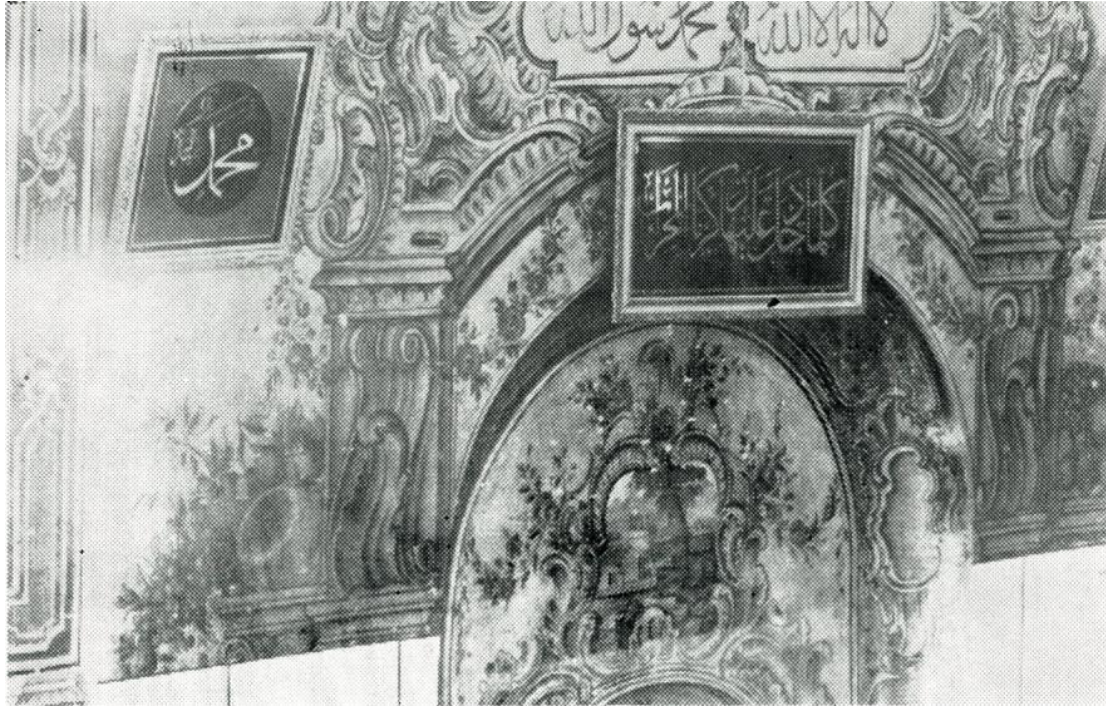 لا اله الا الله محمد رسول الله
كلما دخل عليها زكريا المحراب
محمد